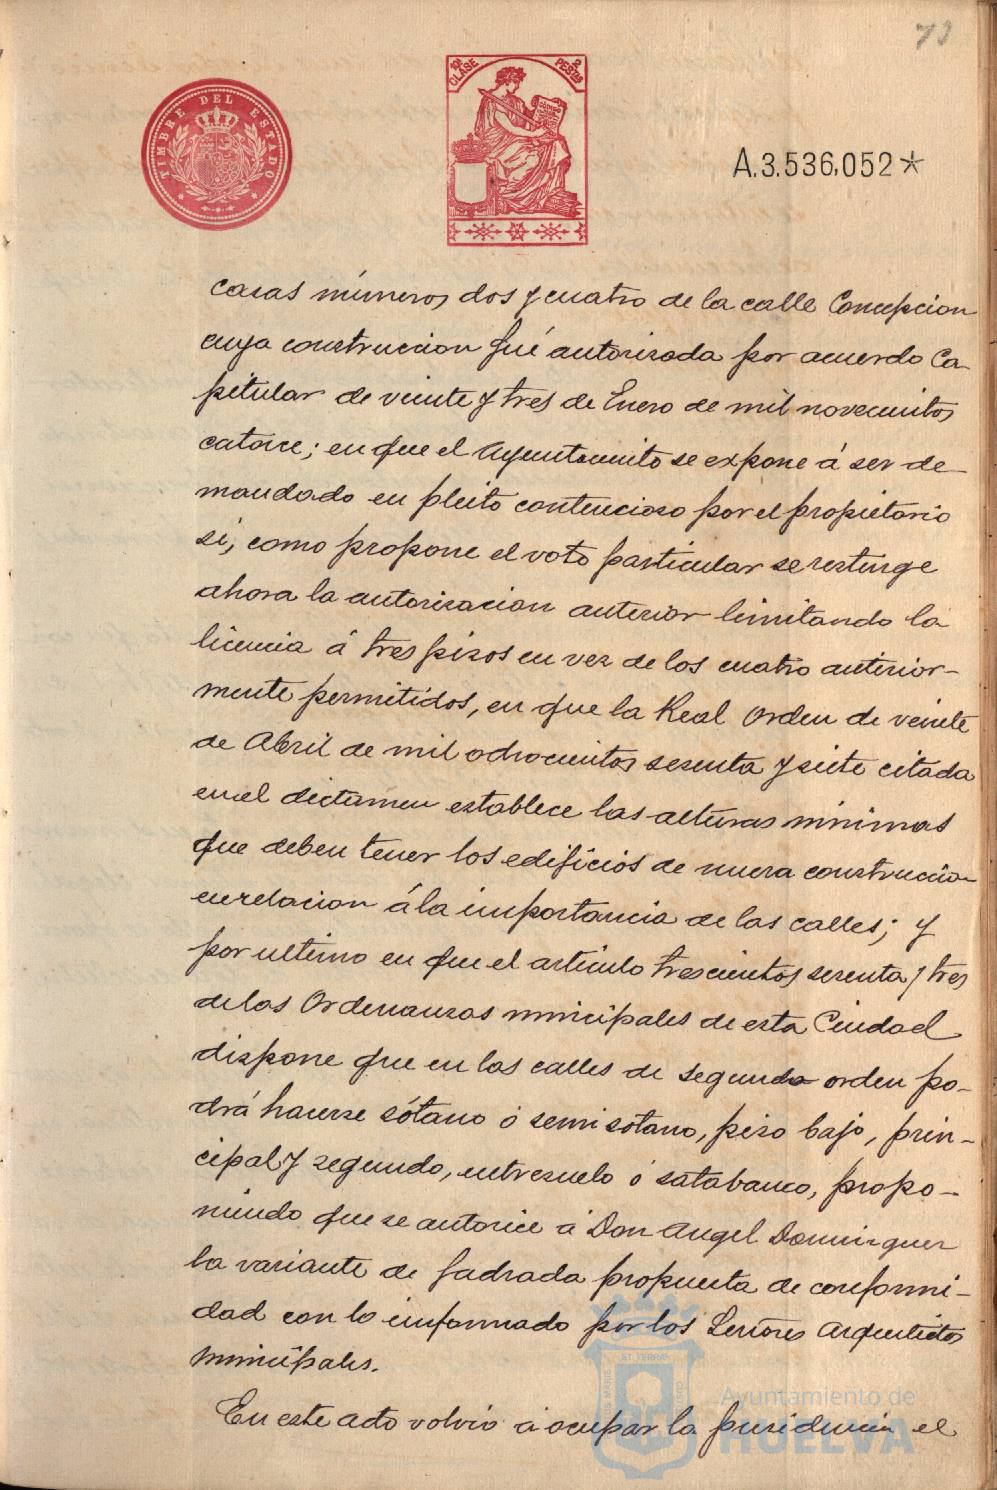 73
TIMBRE DEL ESTADO
10ª CLASE 2 PESTAS
A.3.536,052*
casas números dos y cuatro de la calle Concepcion
cuya construccion fué autorizada por acuerdo Ca-
pitular de veinte y tres de Enero de mil novecientos
catorce; en que el Ayuntamiento se expone á ser de-
mandado en pleito contencioso por el propietario
si, como propone el voto particular se restinge
ahora la autorizacion anterior limitando la
licencia á tres pisos en vez de los cuatro anterior-
mente permitidos, en que la Real Orden de veinte
de Abril de mil ochocientos sesenta y siete citada
en el dictamen establece las alturas mínimas
que deben tener los edificios de nueva construccion
en relacion á la importancia de las calles; y
por ultimo en que el artículo trescientos sesenta y tres
de las Ordenanzas municipales de esta Ciudad
dispone que en las calles de segundo orden po-
drá hacerse sótano ó semisótano, piso bajo, prin-
cipal y segundo, entresuelo ó sotabanco, propo-
niendo que se autorice á Don Angel Dominguez
la variante de fachada propuesta de conformi-
dad con lo informado por los Señores Arquitectos
municipales.
En este acto volvió á ocupar la presidencia el
Ayuntamiento de
HUELVA